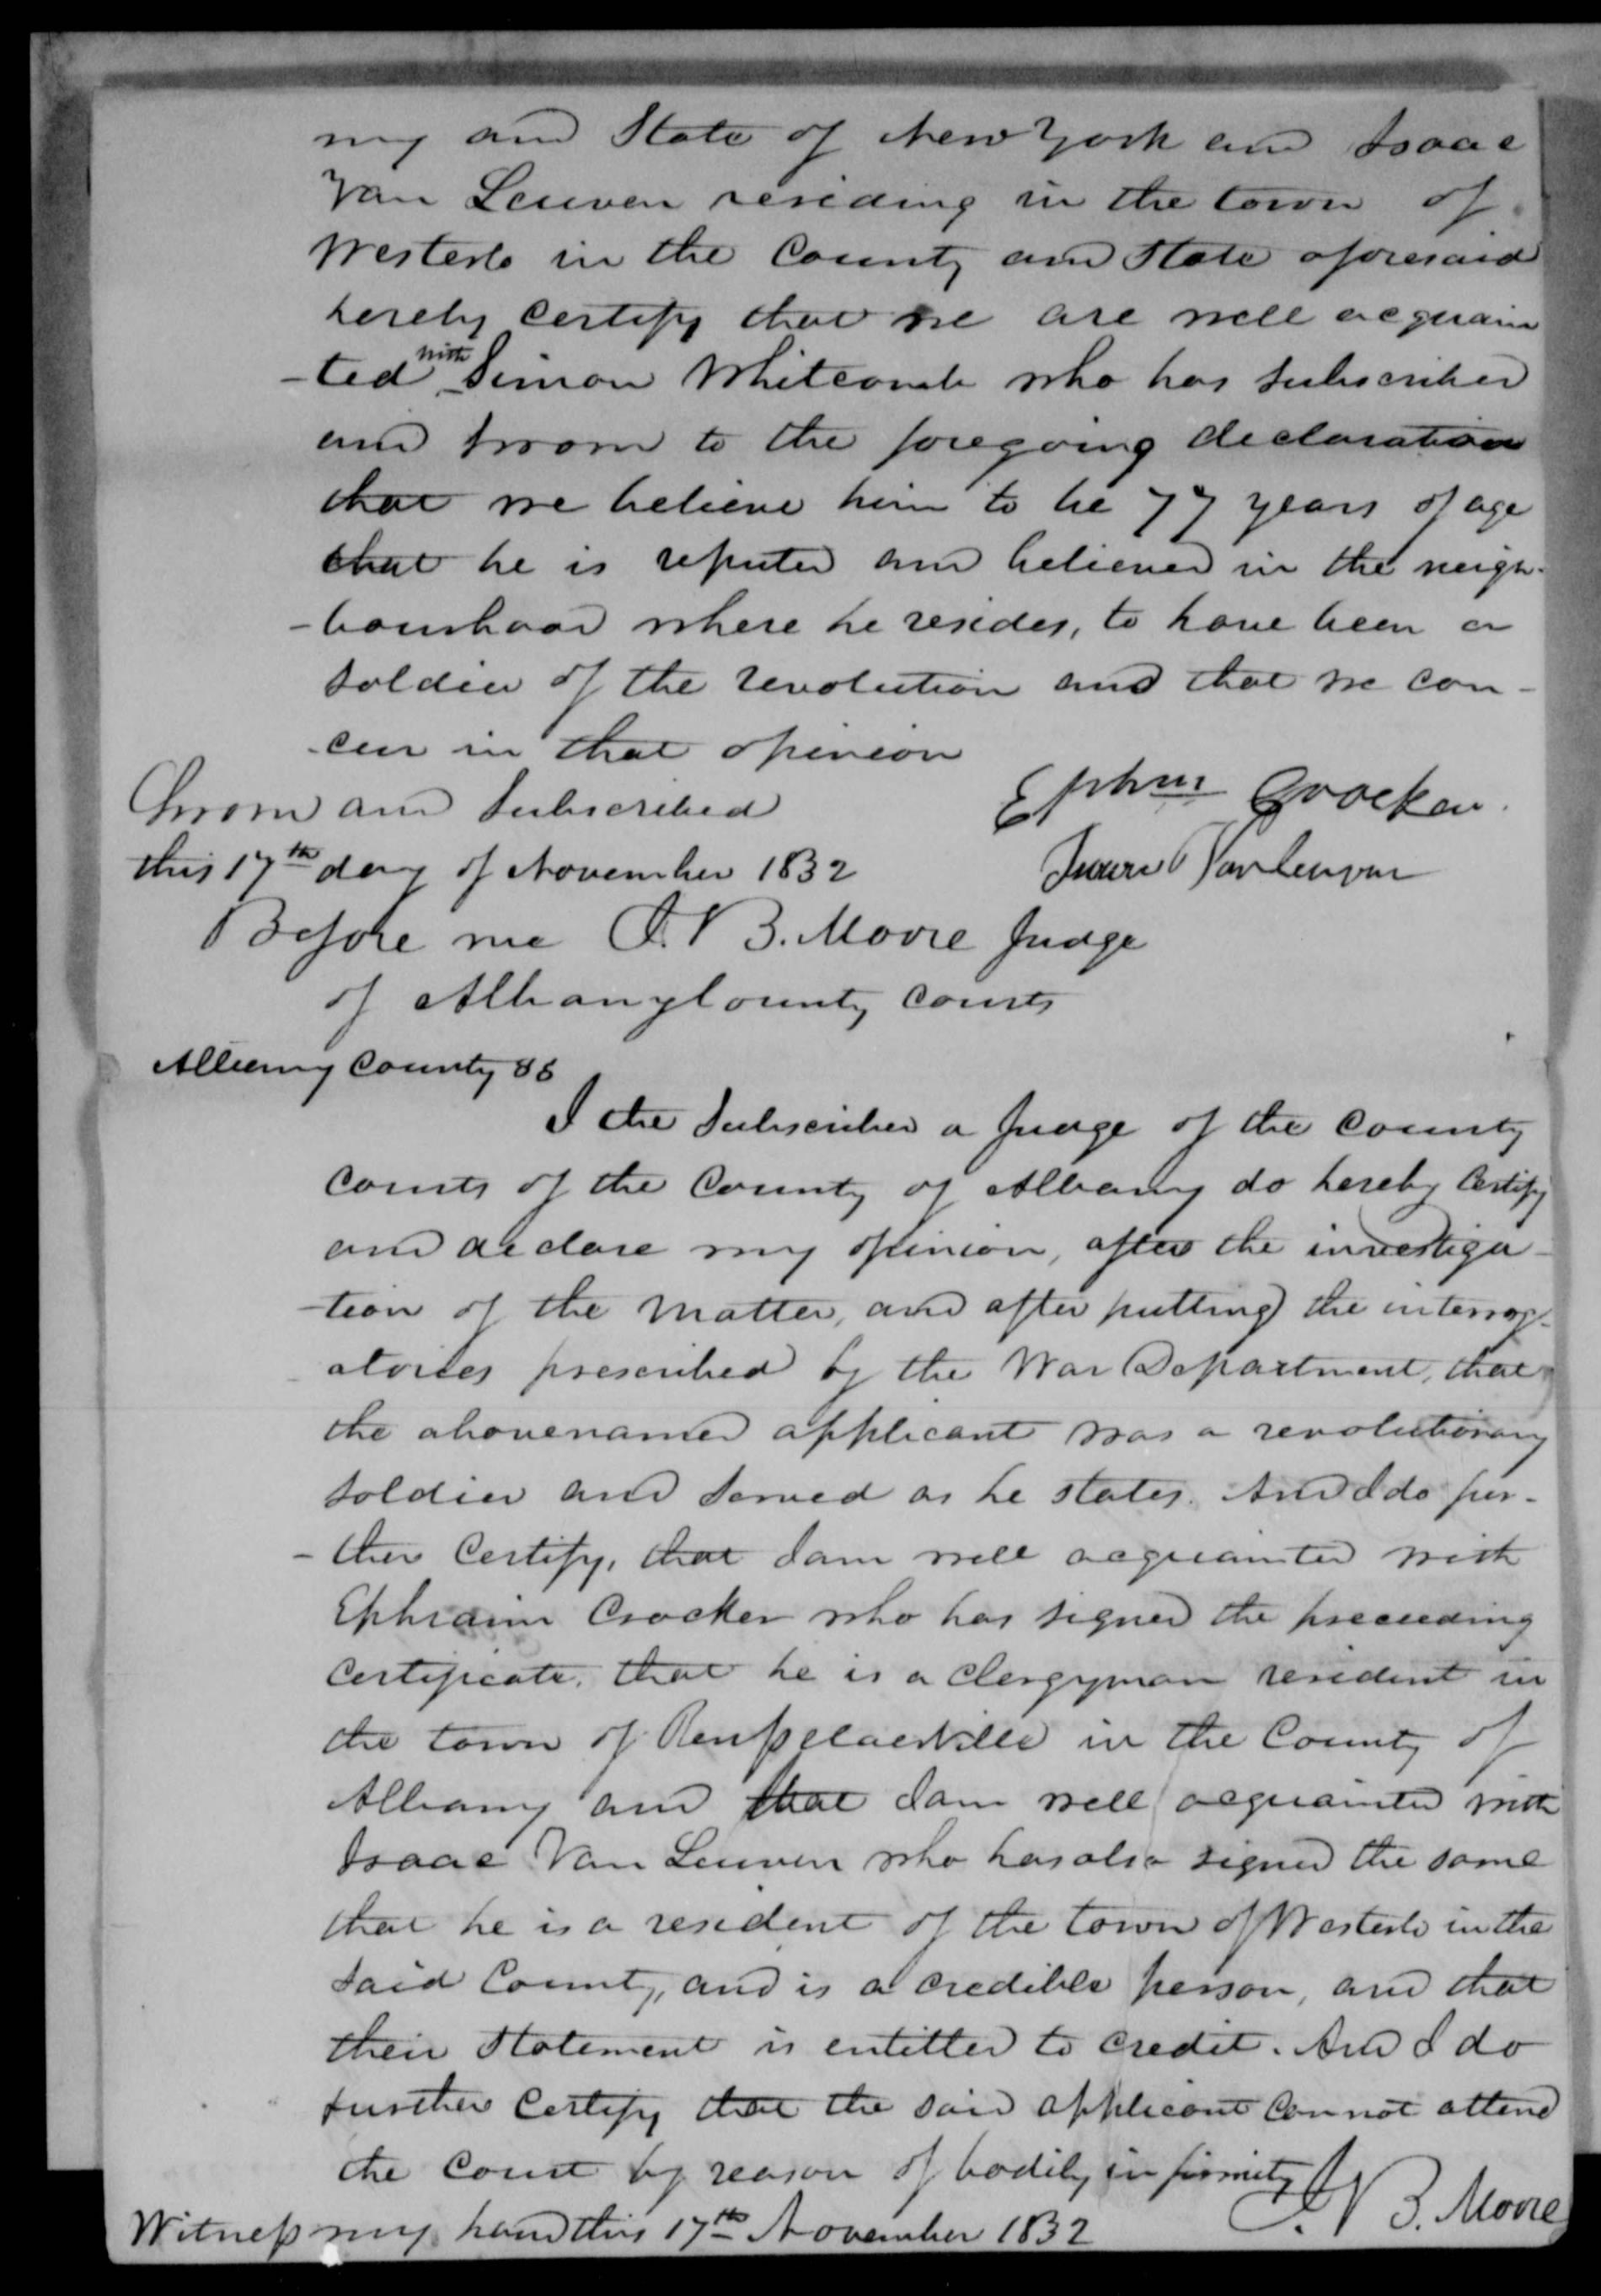 ny and State of New York and Isaac
Van Leuven residing in the town of
Westerlo in the County and State aforesaid
hereby certify that we are well acquain
-ted with Simon Whitcomb who has subscribed
and sworn to the foregoing declaration
that we believe him to be 77 years of age
that he is reputed and believed in the neigh-
-bourhood where he resides, to have been a
soldier of the revolution and that we con-
-cur in that opinion
Sworn and Subscribed
Ephm Crocker.
this 17th day of November 1832
Isaac Van Leuven
Before me J. V B. Moore Judge
of Albany County Courts
Albany County SS
I the Subscriber a Judge of the County
Courts of the County of Albany do hereby Certify
and declare my opinion, after the investiga-
-tion of the Matter, and after putting the interrog-
-atories prescribed by the War Department, that
the abovenamed applicant was a revolutionary
soldier and served as he states. And I do fur-
-ther Certify, that I am well acquainted with
Ephraim Crocker who has signed the preceeding
Certificate, that he is a Clergyman resident in
the town of Rensselaerville in the County of
Albany and that I am well acquainted with
Isaac Van Leuven who has also signed the same
that he is a resident of the town of Westerlo in the
said County, and is a credible person, and that
their Statement is entitled to credit. And I do
further Certify that the said applicant Cannot attend
the Court by reason of bodily infirmity
Witness my hand this 17th November 1832
J. V B. Moore